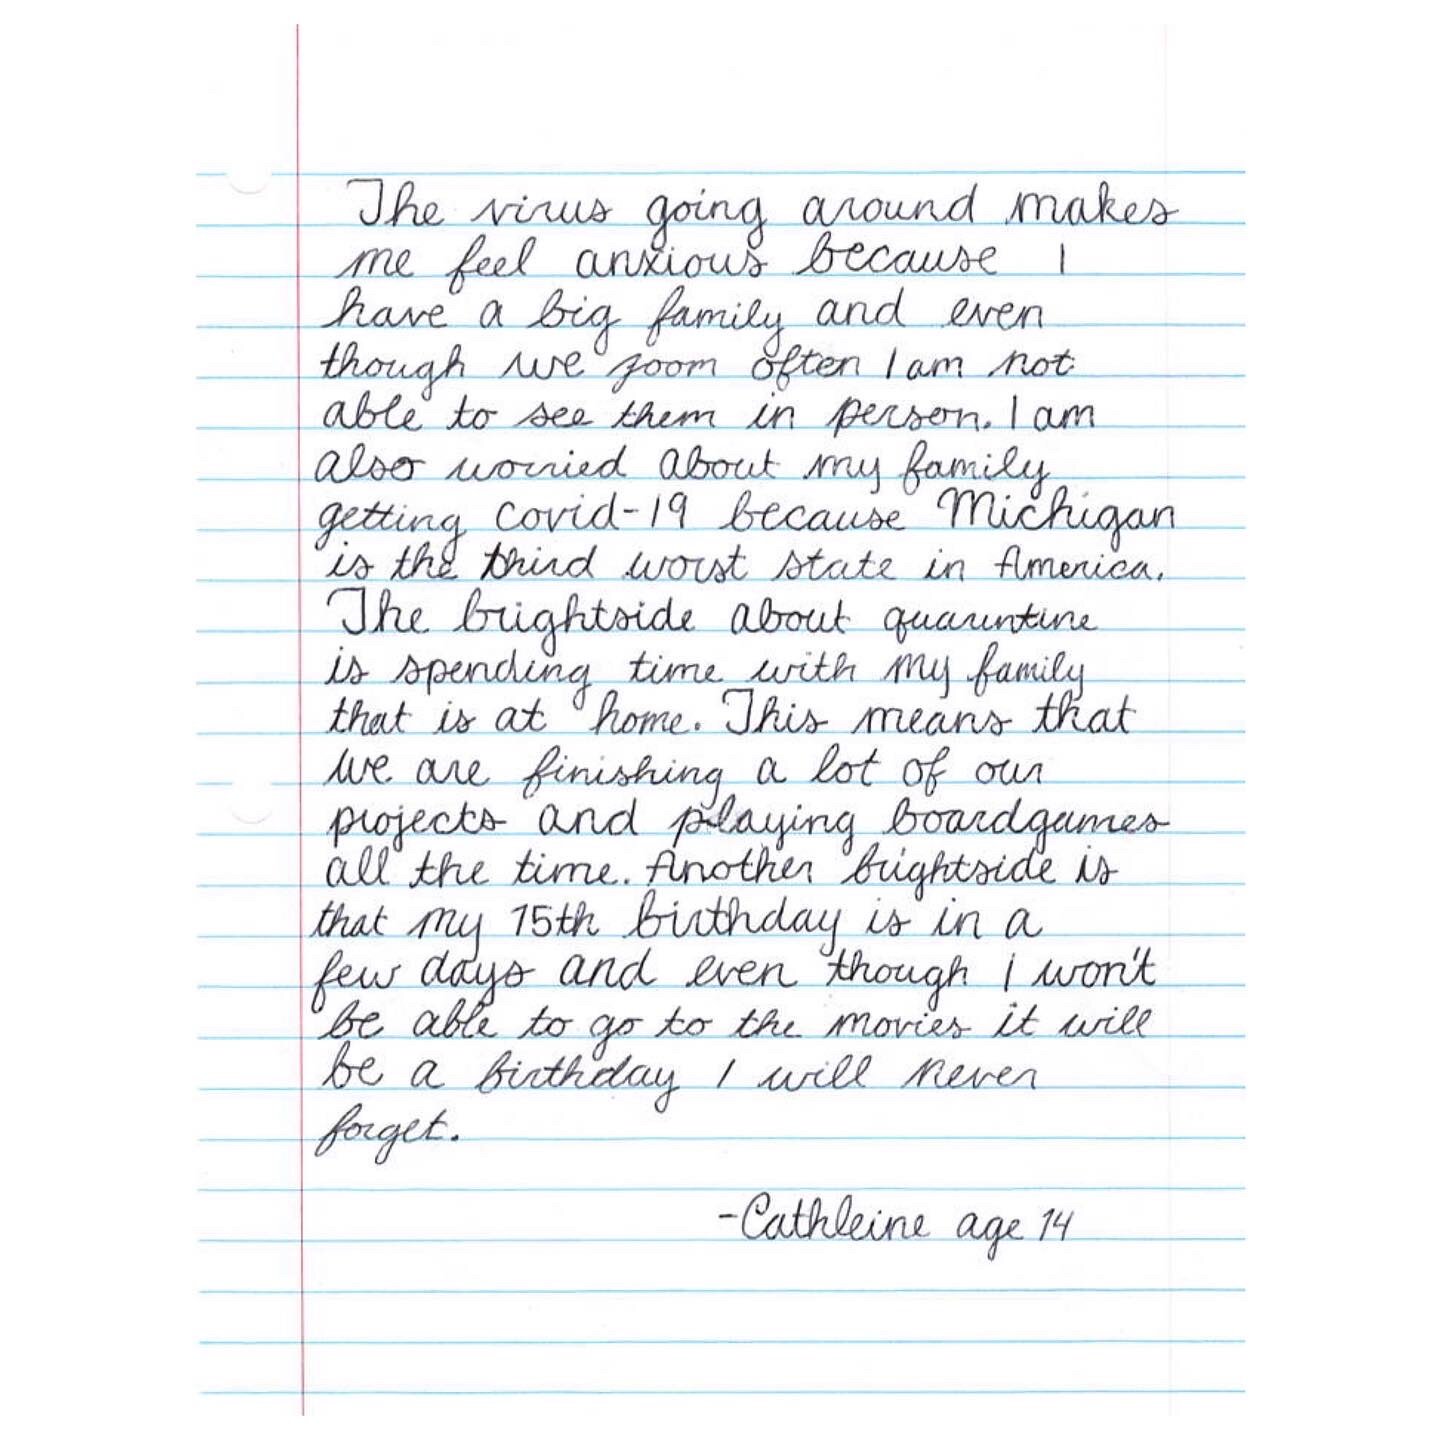 The virus going around makes
me feel anxious because I
have a big family and even
though we zoom often I am not
able to see them in person. I am
also worried about my family
getting covid-19 because Michigan
is the third worst state in America.
The brightside about quaruntine
is spending time with my family
that is at home. This means that
we are finishing a lot of our
projects and playing boardgames
all the time. Another brightside is
that my 15th birthday is in a
few days and even though I won't
be able to go to the movies it will
be a birthday I will never
forget.
-Cathleine age 14